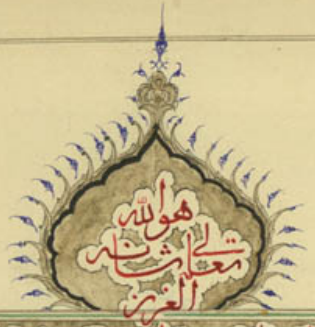 هو الله
تعالى شانه
العزيز